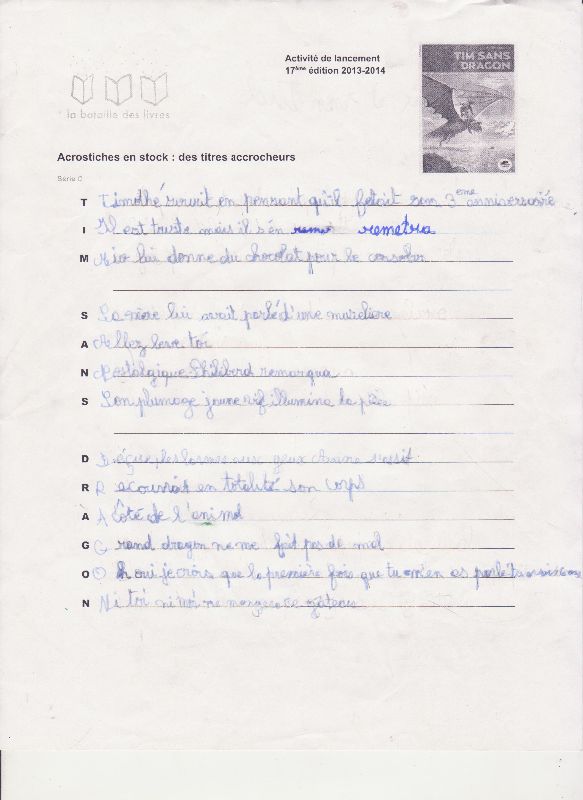 Activité de lancement
17ème édition 2013-2014
TIM SANS
DRAGON
la bataille des livres
Acrostiches en stock : des titres accrocheurs
Série C
T Timothé en pensant qu'il fetait son 3eme anniversaire
I Il est triste mais il s'en remetra
M Mio lui donne du chocolat pour le consoler
S Sa mère lui avait parlé d'une museliere
A Allez leve toi
N Nostalgique Philibert remarqua
S Son plumage jaune vif illumina la pièce
D Déçue, les larmes aux yeux s'assit
R Recouvrait en totalité son corps
A A côté de l'animal
G Grand dragon ne me fait pas de mal
O Oh oui je crois que la première fois que tu m'en as parlé
N Ni toi ni moi ne mangera ce gâteau